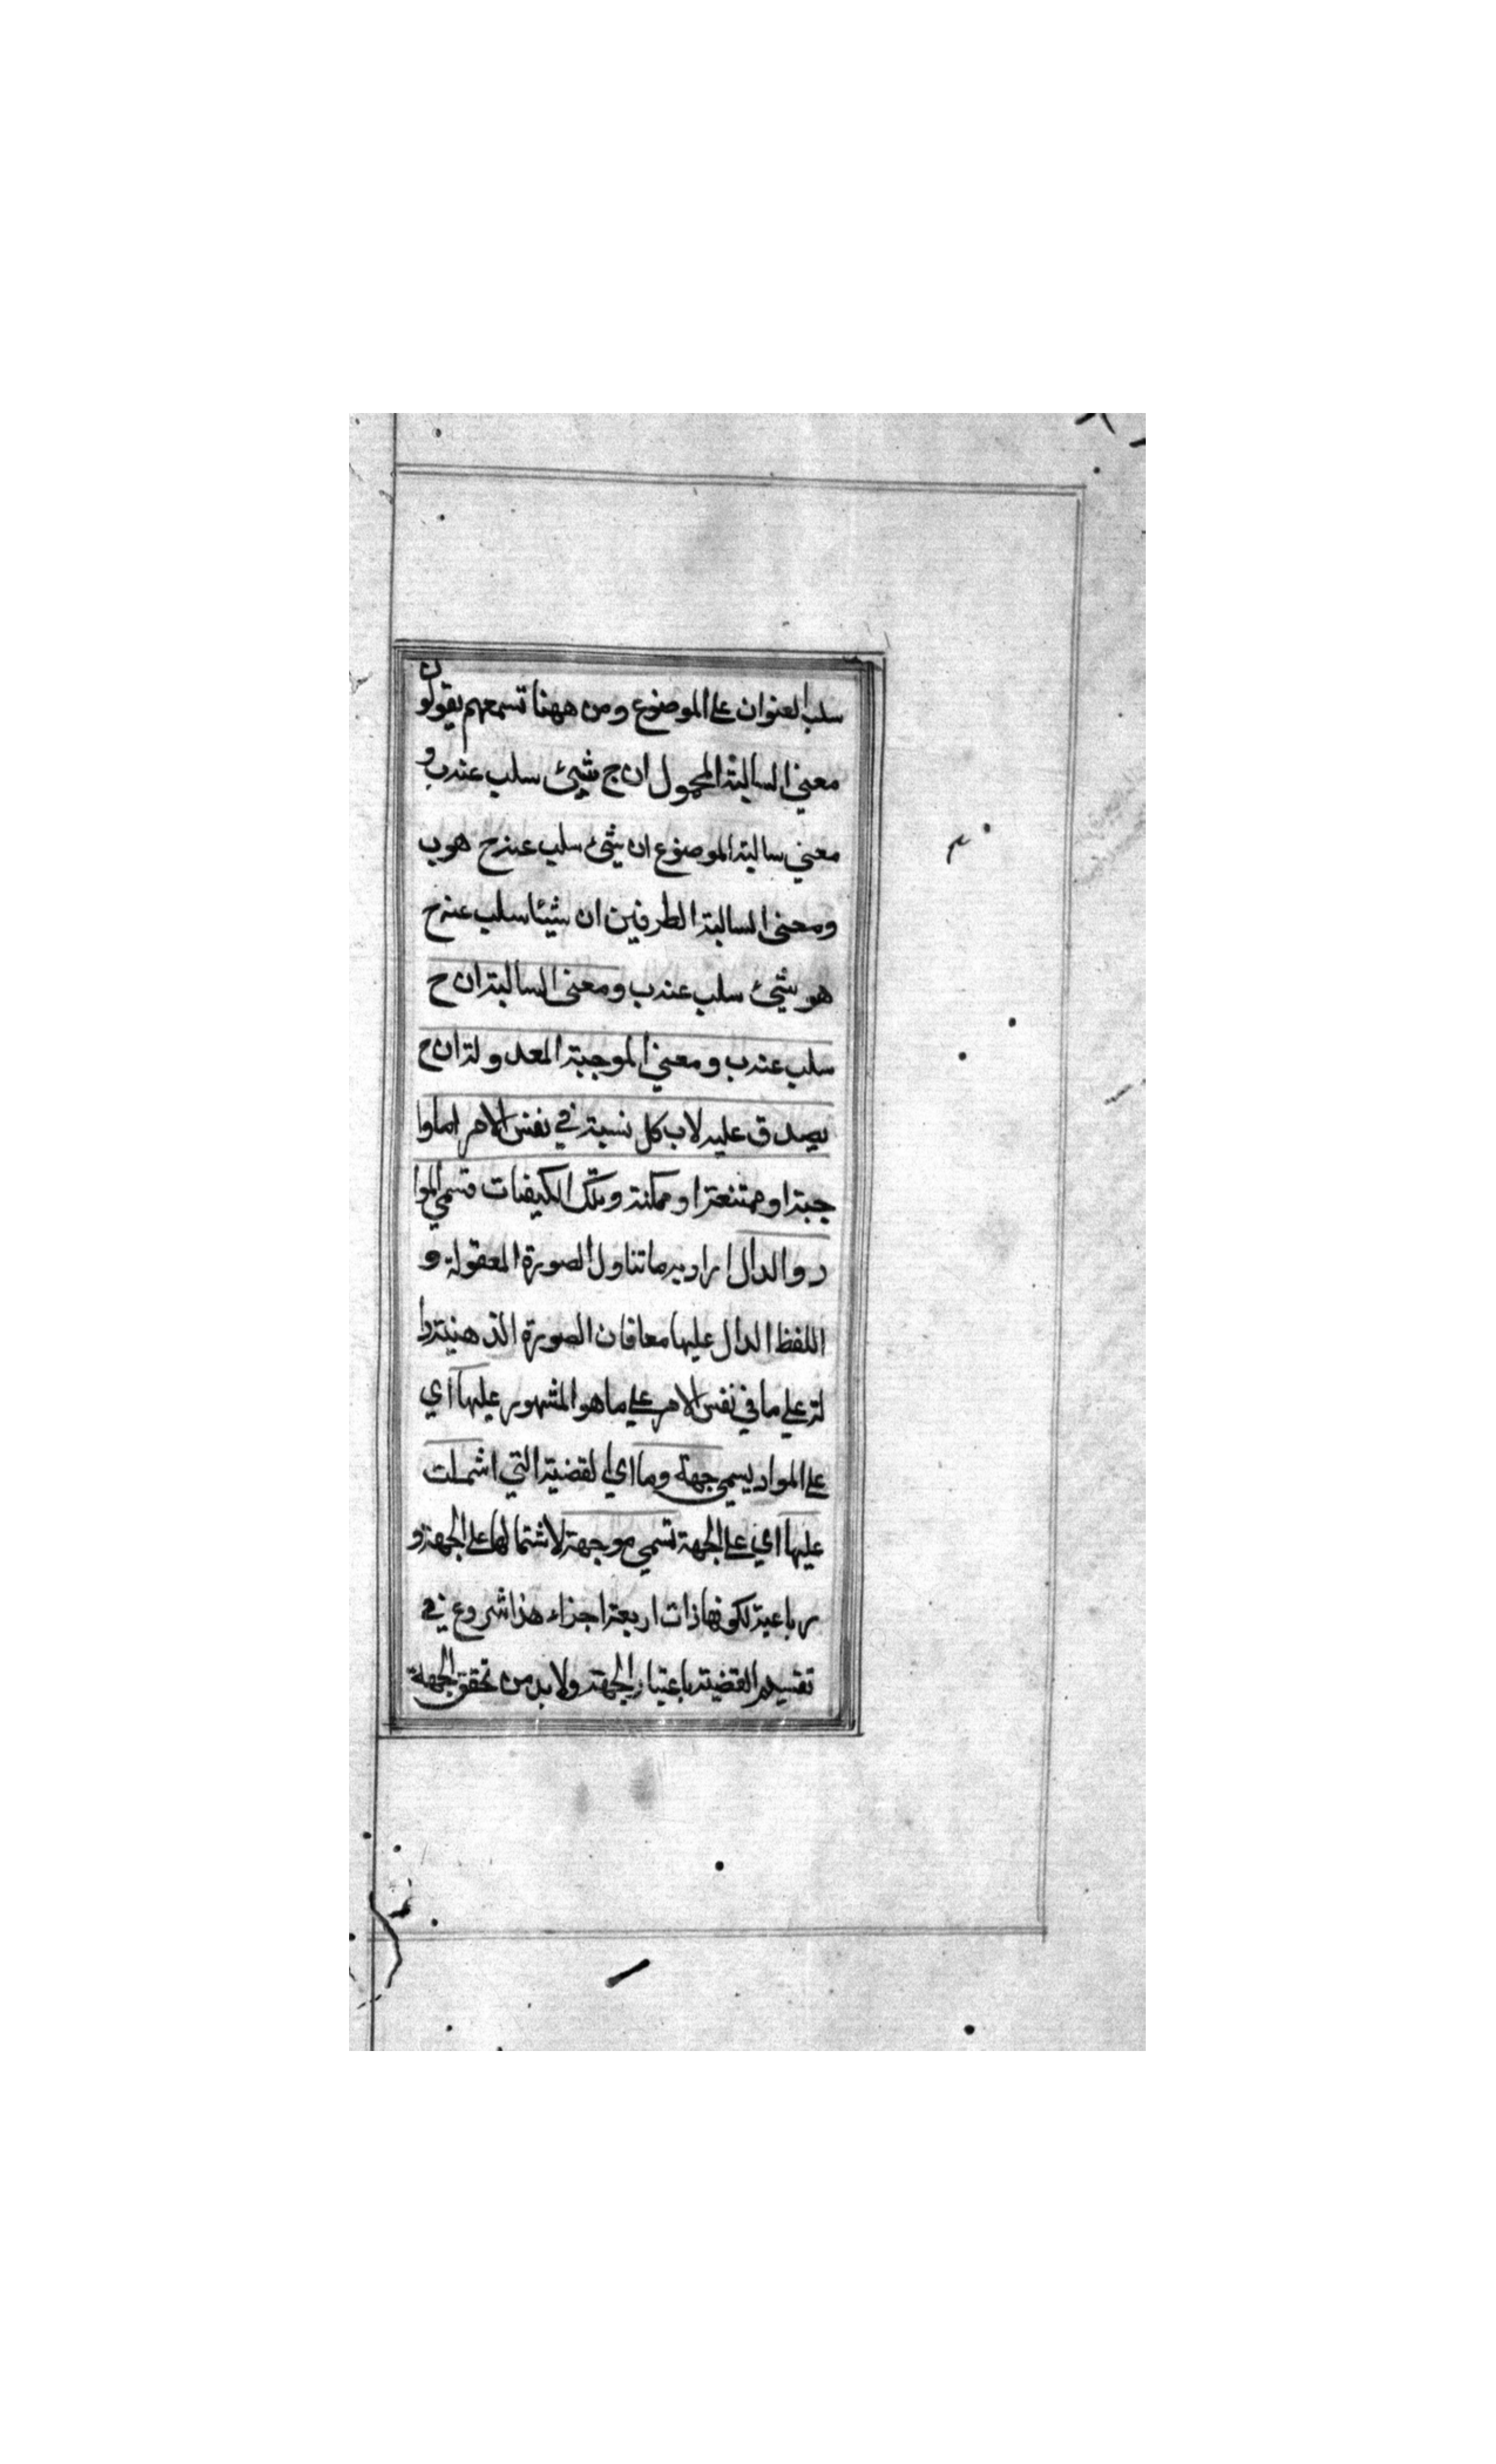 سلب العنوان على الموضوع ومن ههنا تسمعهم يقولون
معنى السالبة المحمول ان ج شيئ سلب عنه ب و
معنى سالبة الموضوع ان شيئ سلب عنه ج هو ب
ومعنى السالبة الطرفين ان شيئا سلب عنه ج
هو شيئ سلب عنه ب ومعنى السالبة ان ج
سلب عنه ب ومعنى الموجبة المعدولة ان ج
يصدق عليه لاب كل نسبة في نفس الامر اما وا
جبة او ممتنعة او ممكنة وتلك الكيفيات تسمى الموا
د والدال اراد به ما تناول الصورة المعقولة و
اللفظ الدال عليها معا فان الصورة الذهنية دا
لة على ما في نفس الامر على ما هو المشهور عليها اى
على المواد يسمى جهة وما اى القضية التي اشملت
عليها اى على الجهة تسمى موجهة لاشتمالها على الجهة و
رباعية لكونها ذات اربعة اجزاء هذا شروع في
تقسيم القضية باعتبار الجهة ولا بد من تحقق الجهة